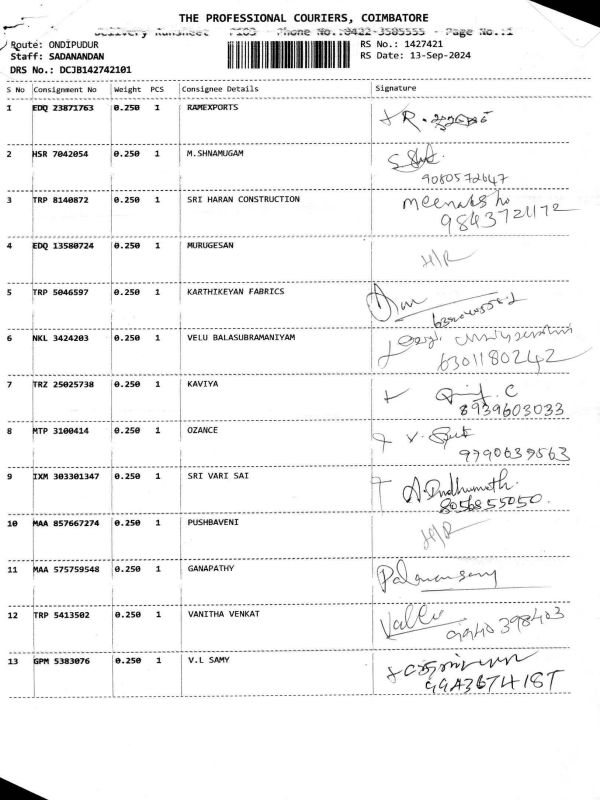 THE PROFESSIONAL COURIERS, COIMBATORE
Delivery Runsheet Phone No.:0422-3505555 - Page No.:1
Route: ONDIPUDUR RS No.: 1427421
Staff: SADANANDAN RS Date: 13-Sep-2024
DRS No.: DCJB142742101
S No Consignment No Weight PCS Consignee Details Signature
1 EDQ 23871763 0.250 1 RAMEXPORTS
2 HSR 7042054 0.250 1 M.SHNAMUGAM
9080572647
3 TRP 8140872 0.250 1 SRI HARAN CONSTRUCTION
9843721172
4 EDQ 13580724 0.250 1 MURUGESAN H/R
5 TRP 5046597 0.250 1 KARTHIKEYAN FABRICS
6 NKL 3424203 0.250 1 VELU BALASUBRAMANIYAM
6301180242
7 TRZ 25025738 0.250 1 KAVIYA
8939603033
8 MTP 3100414 0.250 1 OZANCE
9790639563
9 IXM 303301347 0.250 1 SRI VARI SAI A.Indhumathi
8056855050.
10 MAA 857667274 0.250 1 PUSHBAVENI H/R
11 MAA 575759548 0.250 1 GANAPATHY
12 TRP 5413502 0.250 1 VANITHA VENKAT
9940398403
13 GPM 5383076 0.250 1 V.L SAMY